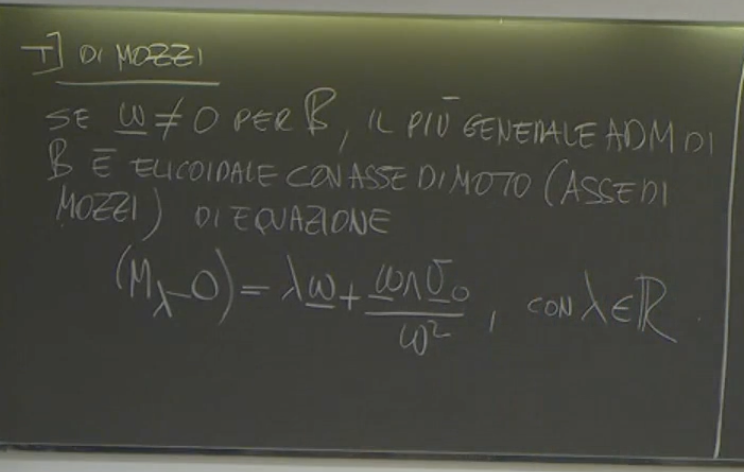 T] DI MOZZI
SE ω ≠ 0 PER B, IL PIÙ GENERALE ADM DI
B È ELICOIDALE CON ASSE DI MOTO (ASSE DI
MOZZI) DI EQUAZIONE
(M_λ-O) = λω + (ω∧v_O)/ω², CON λ∈ℝ.